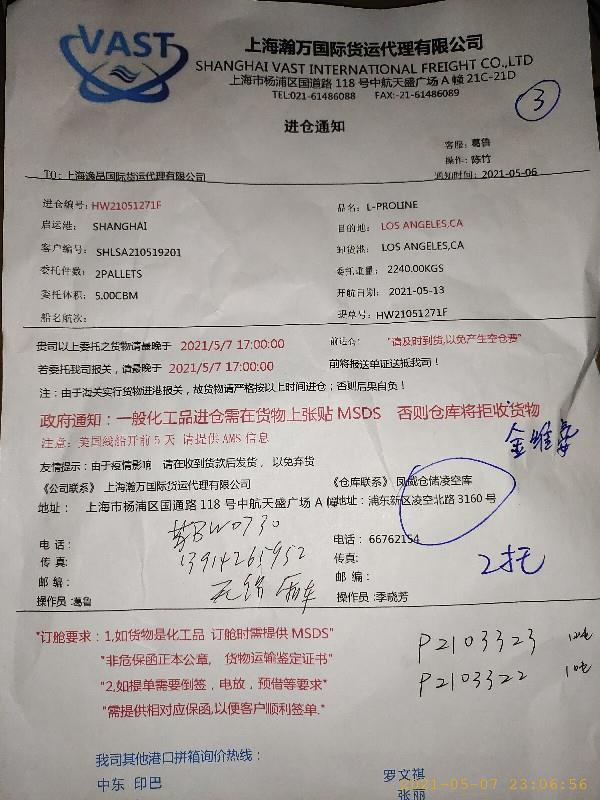 VAST
上海瀚万国际货运代理有限公司
SHANGHAI VAST INTERNATIONAL FREIGHT CO.,LTD
上海市杨浦区国道路 118 号中航天盛广场 A 幢 21C-21D
TEL:021-61486088 FAX:-21-61486089
3
进仓通知
客服：葛鲁
操作：陈竹
TO：上海逸品国际货运代理有限公司 通知时间：2021-05-06
进仓编号：HW21051271F 品名：L-PROLINE
启运港： SHANGHAI 目的地： LOS ANGELES,CA
客户编号： SHLSA210519201 卸货港： LOS ANGELES,CA
委托件数： 2PALLETS 委托重量： 2240.00KGS
委托体积： 5.00CBM 开航日期： 2021-05-13
船名航次： 提单号：HW21051271F
贵司以上委托之货物请最晚于 2021/5/7 17:00:00 前进仓 "请及时到货,以免产生空仓费"
若委托我司报关，请最晚于 2021/5/7 17:00:00 前将报送单证送抵我司！
注：由于海关实行货物进港报关，故货物请严格按以上时间进仓；否则后果自负！
政府通知：一般化工品进仓需在货物上张贴 MSDS 否则仓库将拒收货物
注意：美国线船开前 5 天 请提供 AMS 信息
友情提示：由于疫情影响 请在收到货款后发货， 以免弃货
《公司联系》上海瀚万国际货运代理有限公司 《仓库联系》凤威仓储凌空库
地址： 上海市杨浦区国通路 118 号中航天盛广场 A 幢 地址：浦东新区凌空北路 3160 号
BW0730
电话： 电话：66762154
传真： 13914265952 传真：
2托
邮编： 邮 编：
操作员：葛鲁 操作员：李晓芳
"订舱要求：1,如货物是化工品 订舱时需提供 MSDS"
"非危保函正本公章， 货物运输鉴定证书"
P2103323
"2,如提单需要倒签，电放，预借等要求"
P2103322
"需提供相对应保函,以便客户顺利签单."
我司其他港口拼箱询价热线：
中东 印巴 罗文祺
张丽
2021-05-07 23:06:56